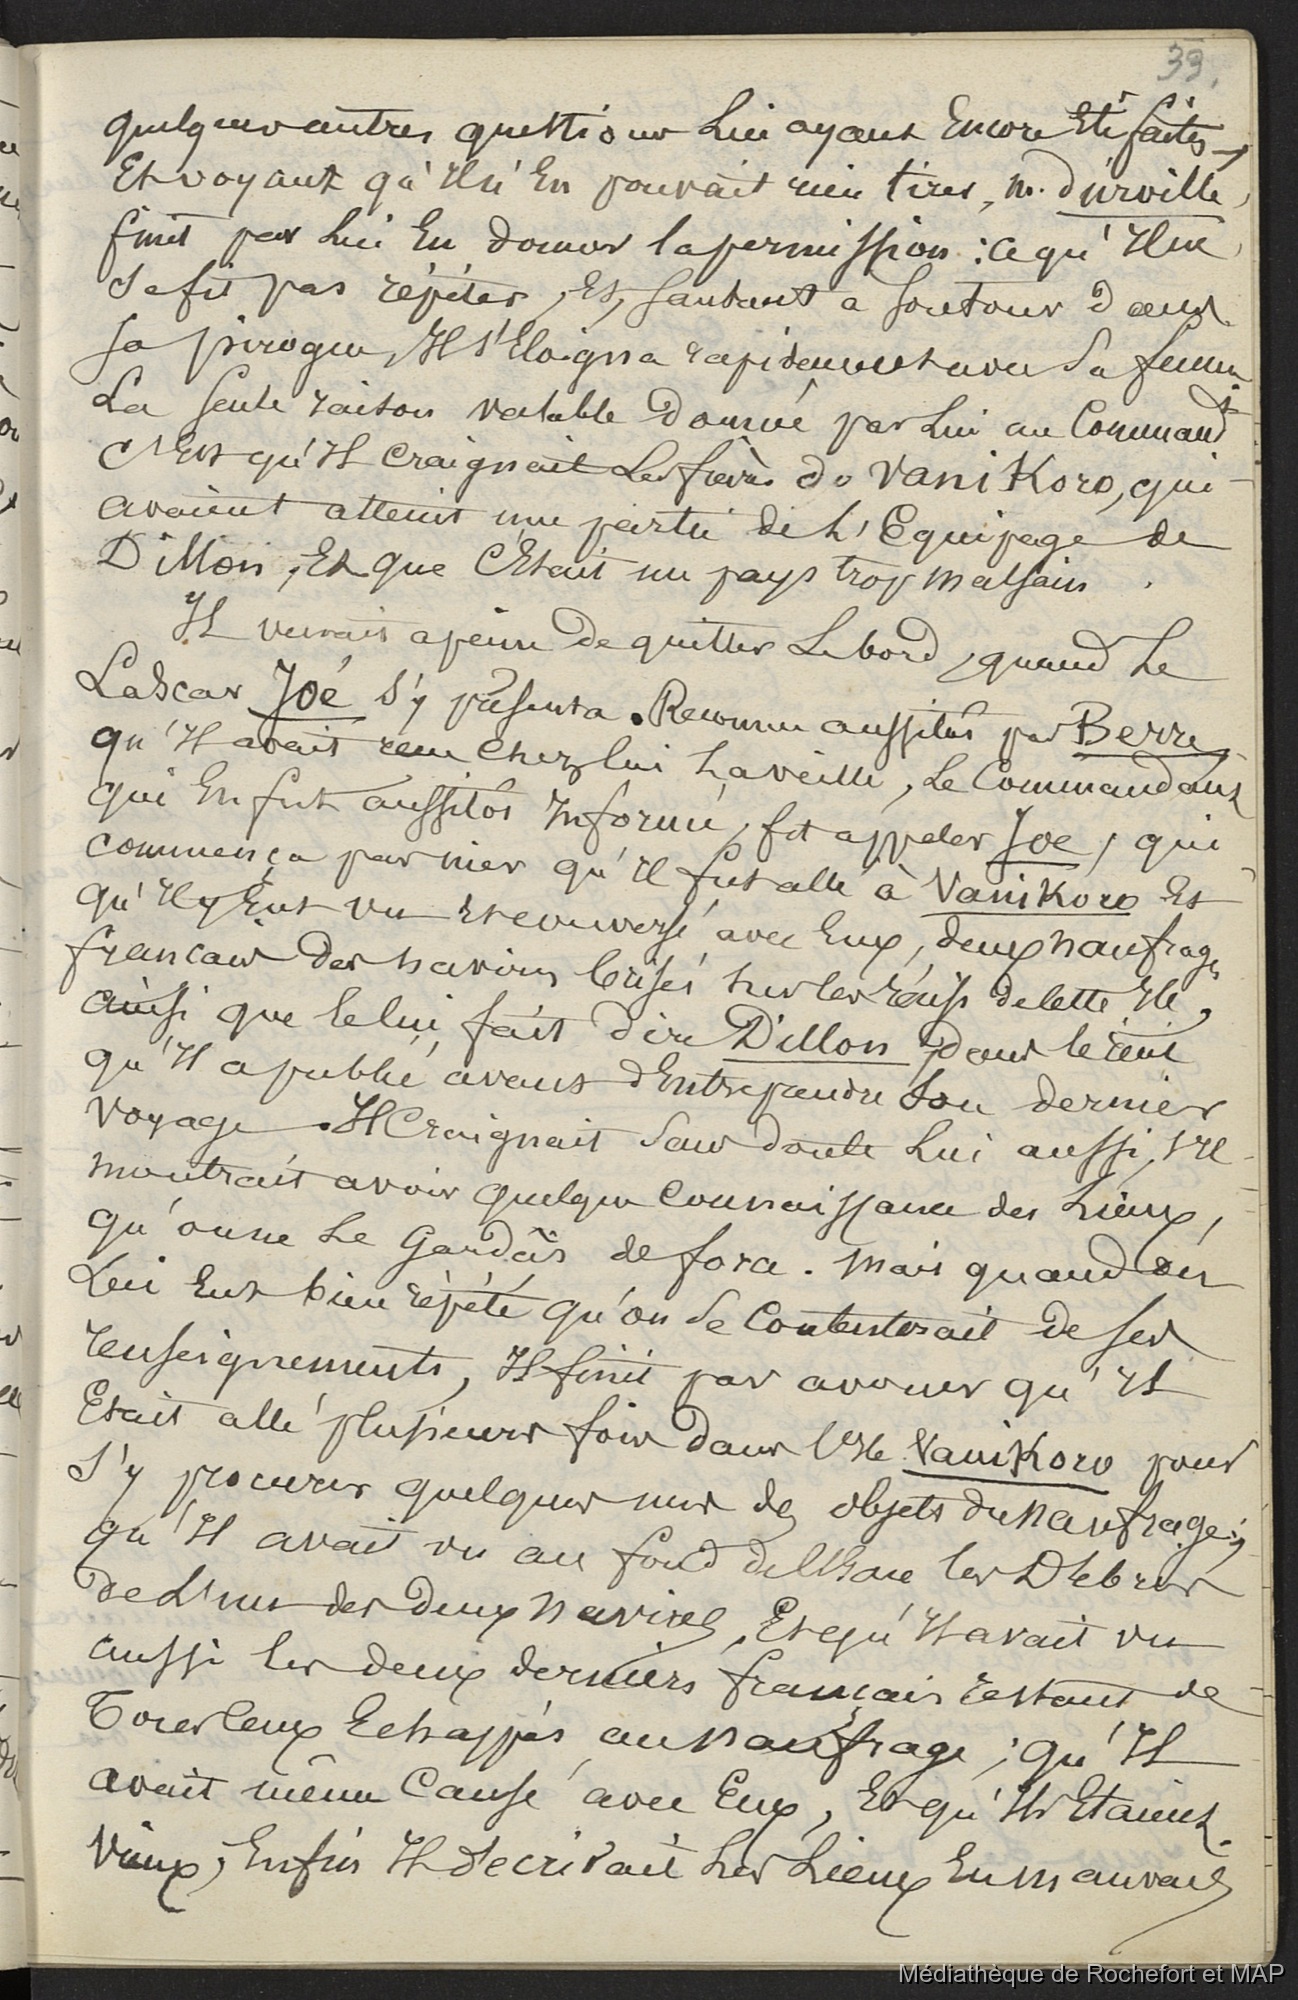 39.
quelques autres questions Lui ayant Encore Eté faites,
Et voyant qu'Il n'En pouvait rien tirer, M. d'urville,
finit par Lui En donner la permission : ce qu'Il ne
Se fit pas répéter, Et, Sautant a Son tour dans
Sa pirogue, Il S'Eloigna rapidement avec Sa femme
La Seule raison valable donnée par Lui au Command.t
C'Est qu'Il craignait Les fièvres de Vanikoro, qui
avaient atteint une partie de L'Equipage de
Dillon, Et que C'Etait un pays trop malsain.
Il venait a peine De quitter Le bord, quand Le
Lascar Joé S'y présenta. Reconnu aussitôt par Berre,
qu'Il avait reçu chez lui La veille, Le Commandant
qui En fut aussitôt Informé, fit appeler Joe, qui
commença par nier qu'Il fut allé à Vanikoro Et
qu'Il y Eut vu Et conversé avec Eux, deux naufragés
francais des navires brisés sur les récifs de Cette Ile,
ainsi que le lui fait dire Dillon, dans le récit
qu'Il a publié avant d'Entreprendre Son dernier
voyage. Il Craignait Sans doute Lui aussi, s'Il
montrait avoir quelque Connaissance des Lieux,
qu'on ne Le Gardât de force. Mais quand on
Lui Eut bien répété qu'on Se Contenterait de Ses
renseignements, Il finit par avouer qu'Il
Etait allé plusieurs fois dans l'Ile Vanikoro pour
S'y procurer quelques uns des objets du naufrage;
qu'Il avait vu au fond de l'Eau les Débris
De L'un des deux navires, Et qu'Il avait vu
aussi les deux derniers français restant de
Tous Ceux Echappés au naufrage; qu'Il
avait même Causé avec Eux, Et qu'Ils Etaient
Vieux; Enfin Il décrivait Les Lieux En mauvais
Médiathèque de Rochefort et MAP